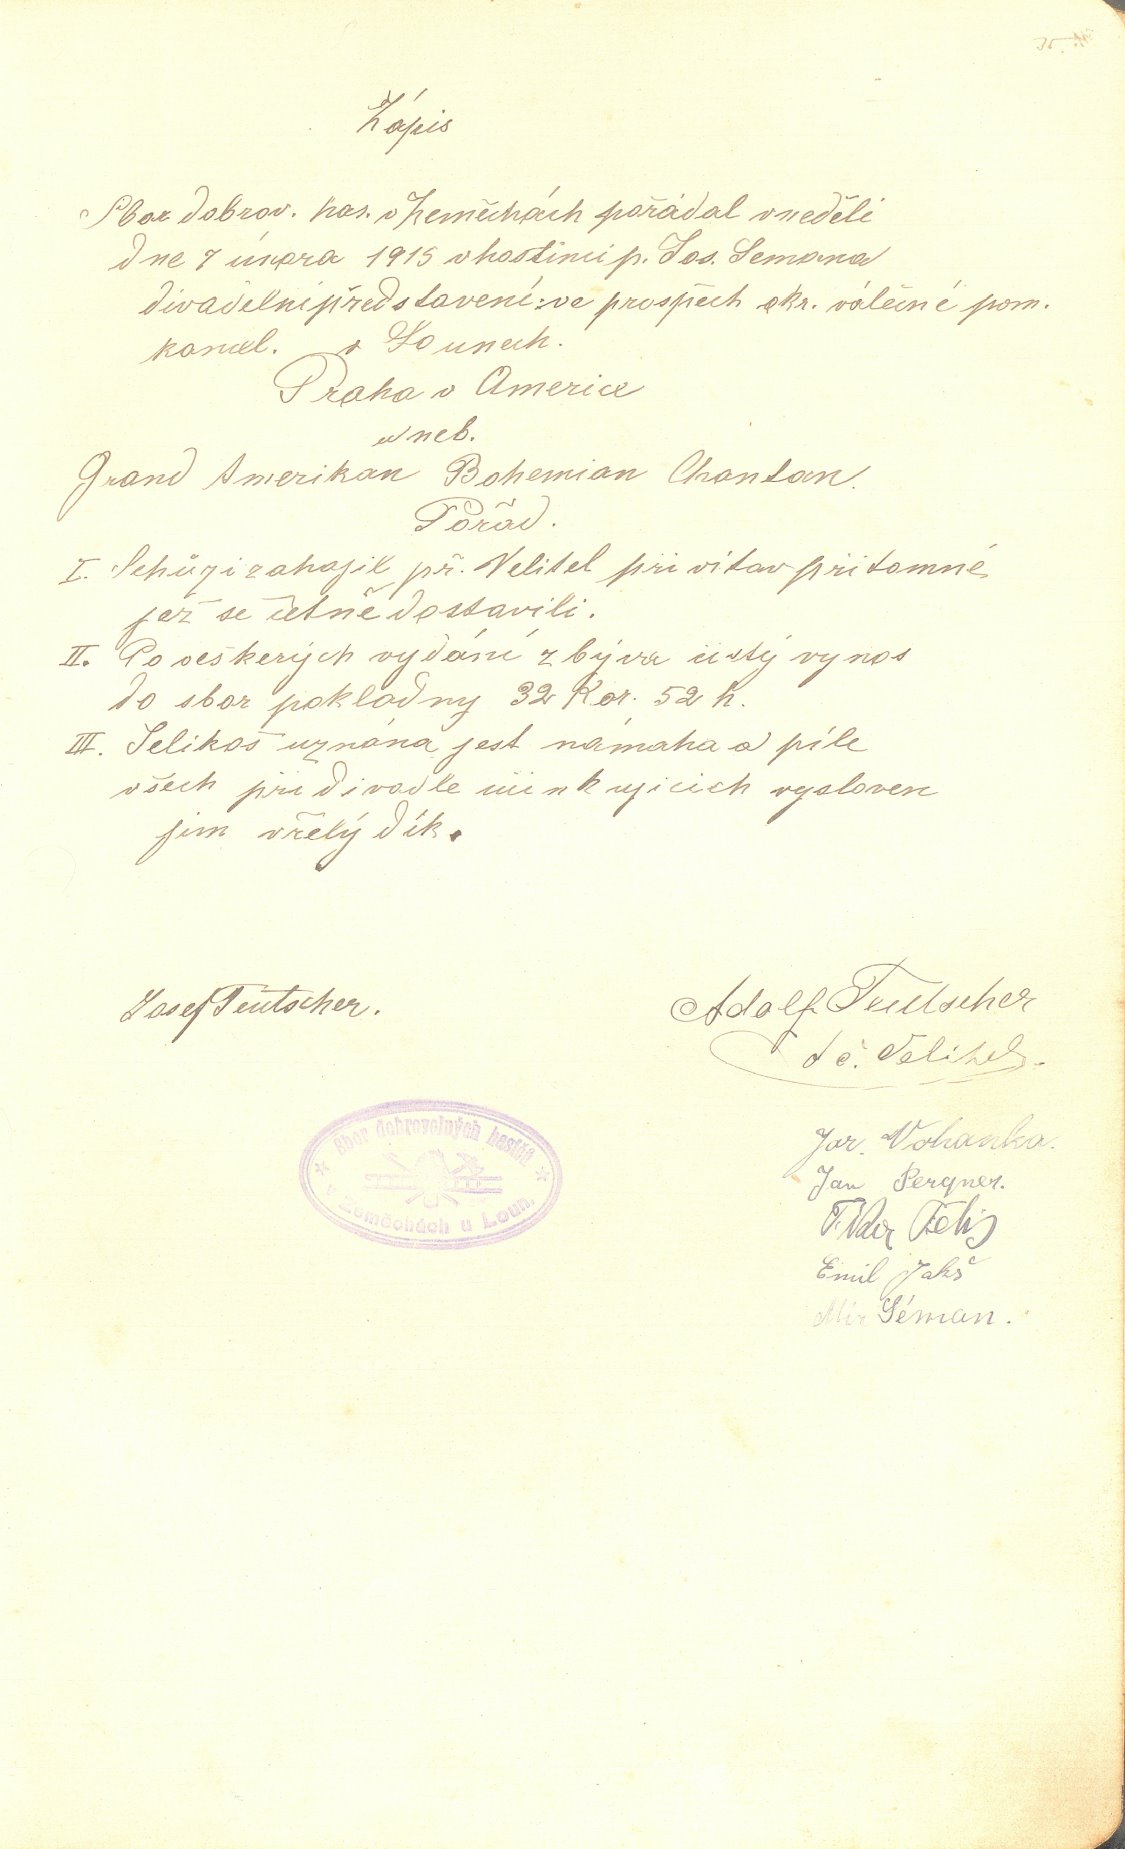 Zápis
Sbor dobrov. has. v Zeměchách pořádal v neděli
dne 7 února 1915 v hostinci p. Jos. Semana
divadelní představení: ve prospěch okr. válečné pom.
kancel. v Lounech.
Praha v Americe
a neb.
Grand Amerikan Bohemian Chantan.
Pořad.
I. Schůzi zahajil př. Velitel přivítav přitomné
jež se četně dostavili.
II. Po veškerých vydání zbýva čistý vynos
do sbor pokladny 32 Kor. 52 h.
III. Jelikož uznána jest námaha a píle
všech při divadle učinkujicich vysloven
jim vřelý dík.
Josef Teutscher.
Adolf Teutscher
t č. Velitel.
Sbor dobrovolných hasičů
v Zeměchách u Loun.
Jar. Vohanka.
Jan Pergner.
Emil Jakš
Séman.